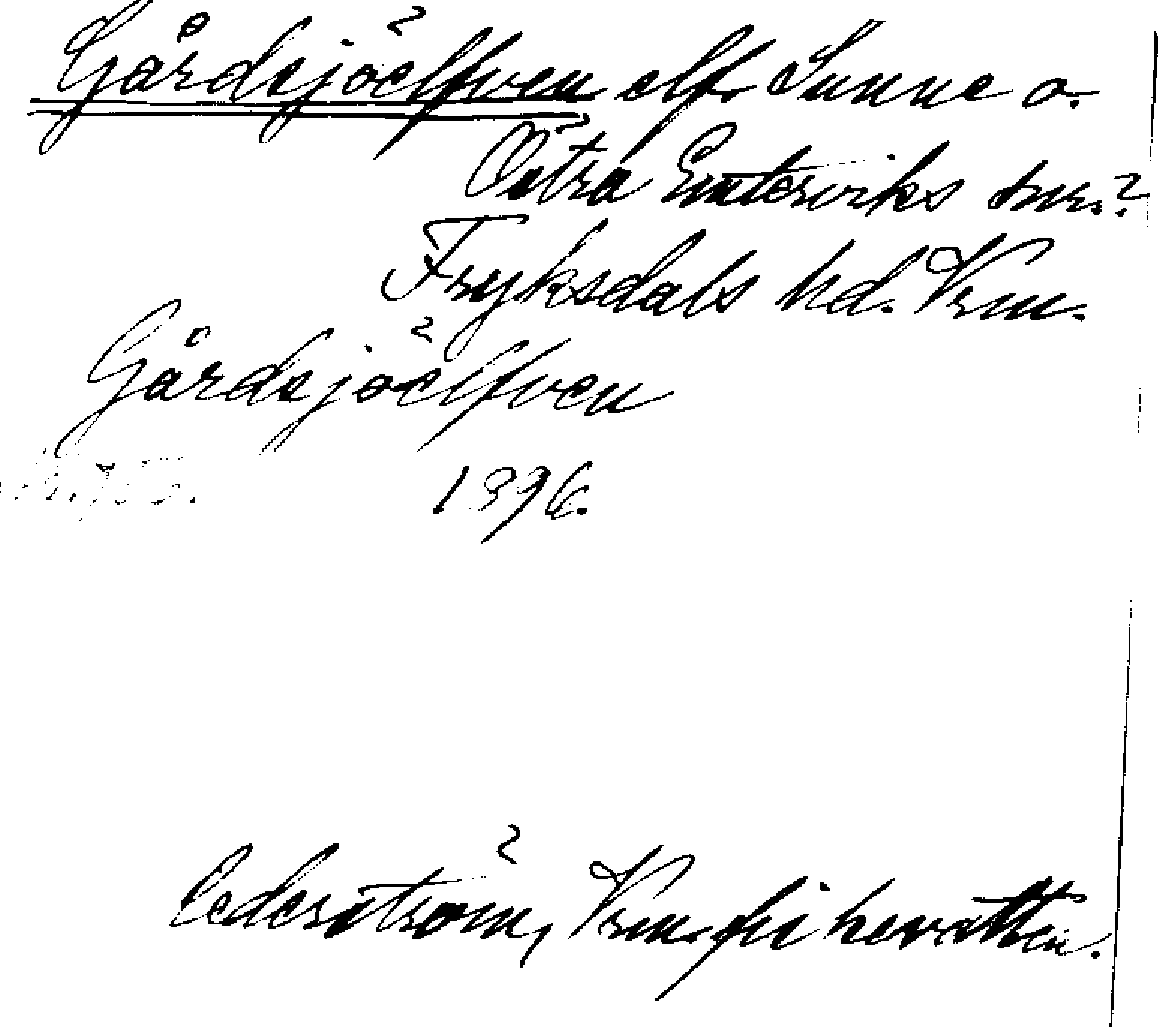 Gårdsjöelfven elf. Sunne o.
Östra Emterviks snr.
Fryksdals hd. Vrm.
Gårdsjöelfven
1896.
Cederström, Vrm. fiskevatten.